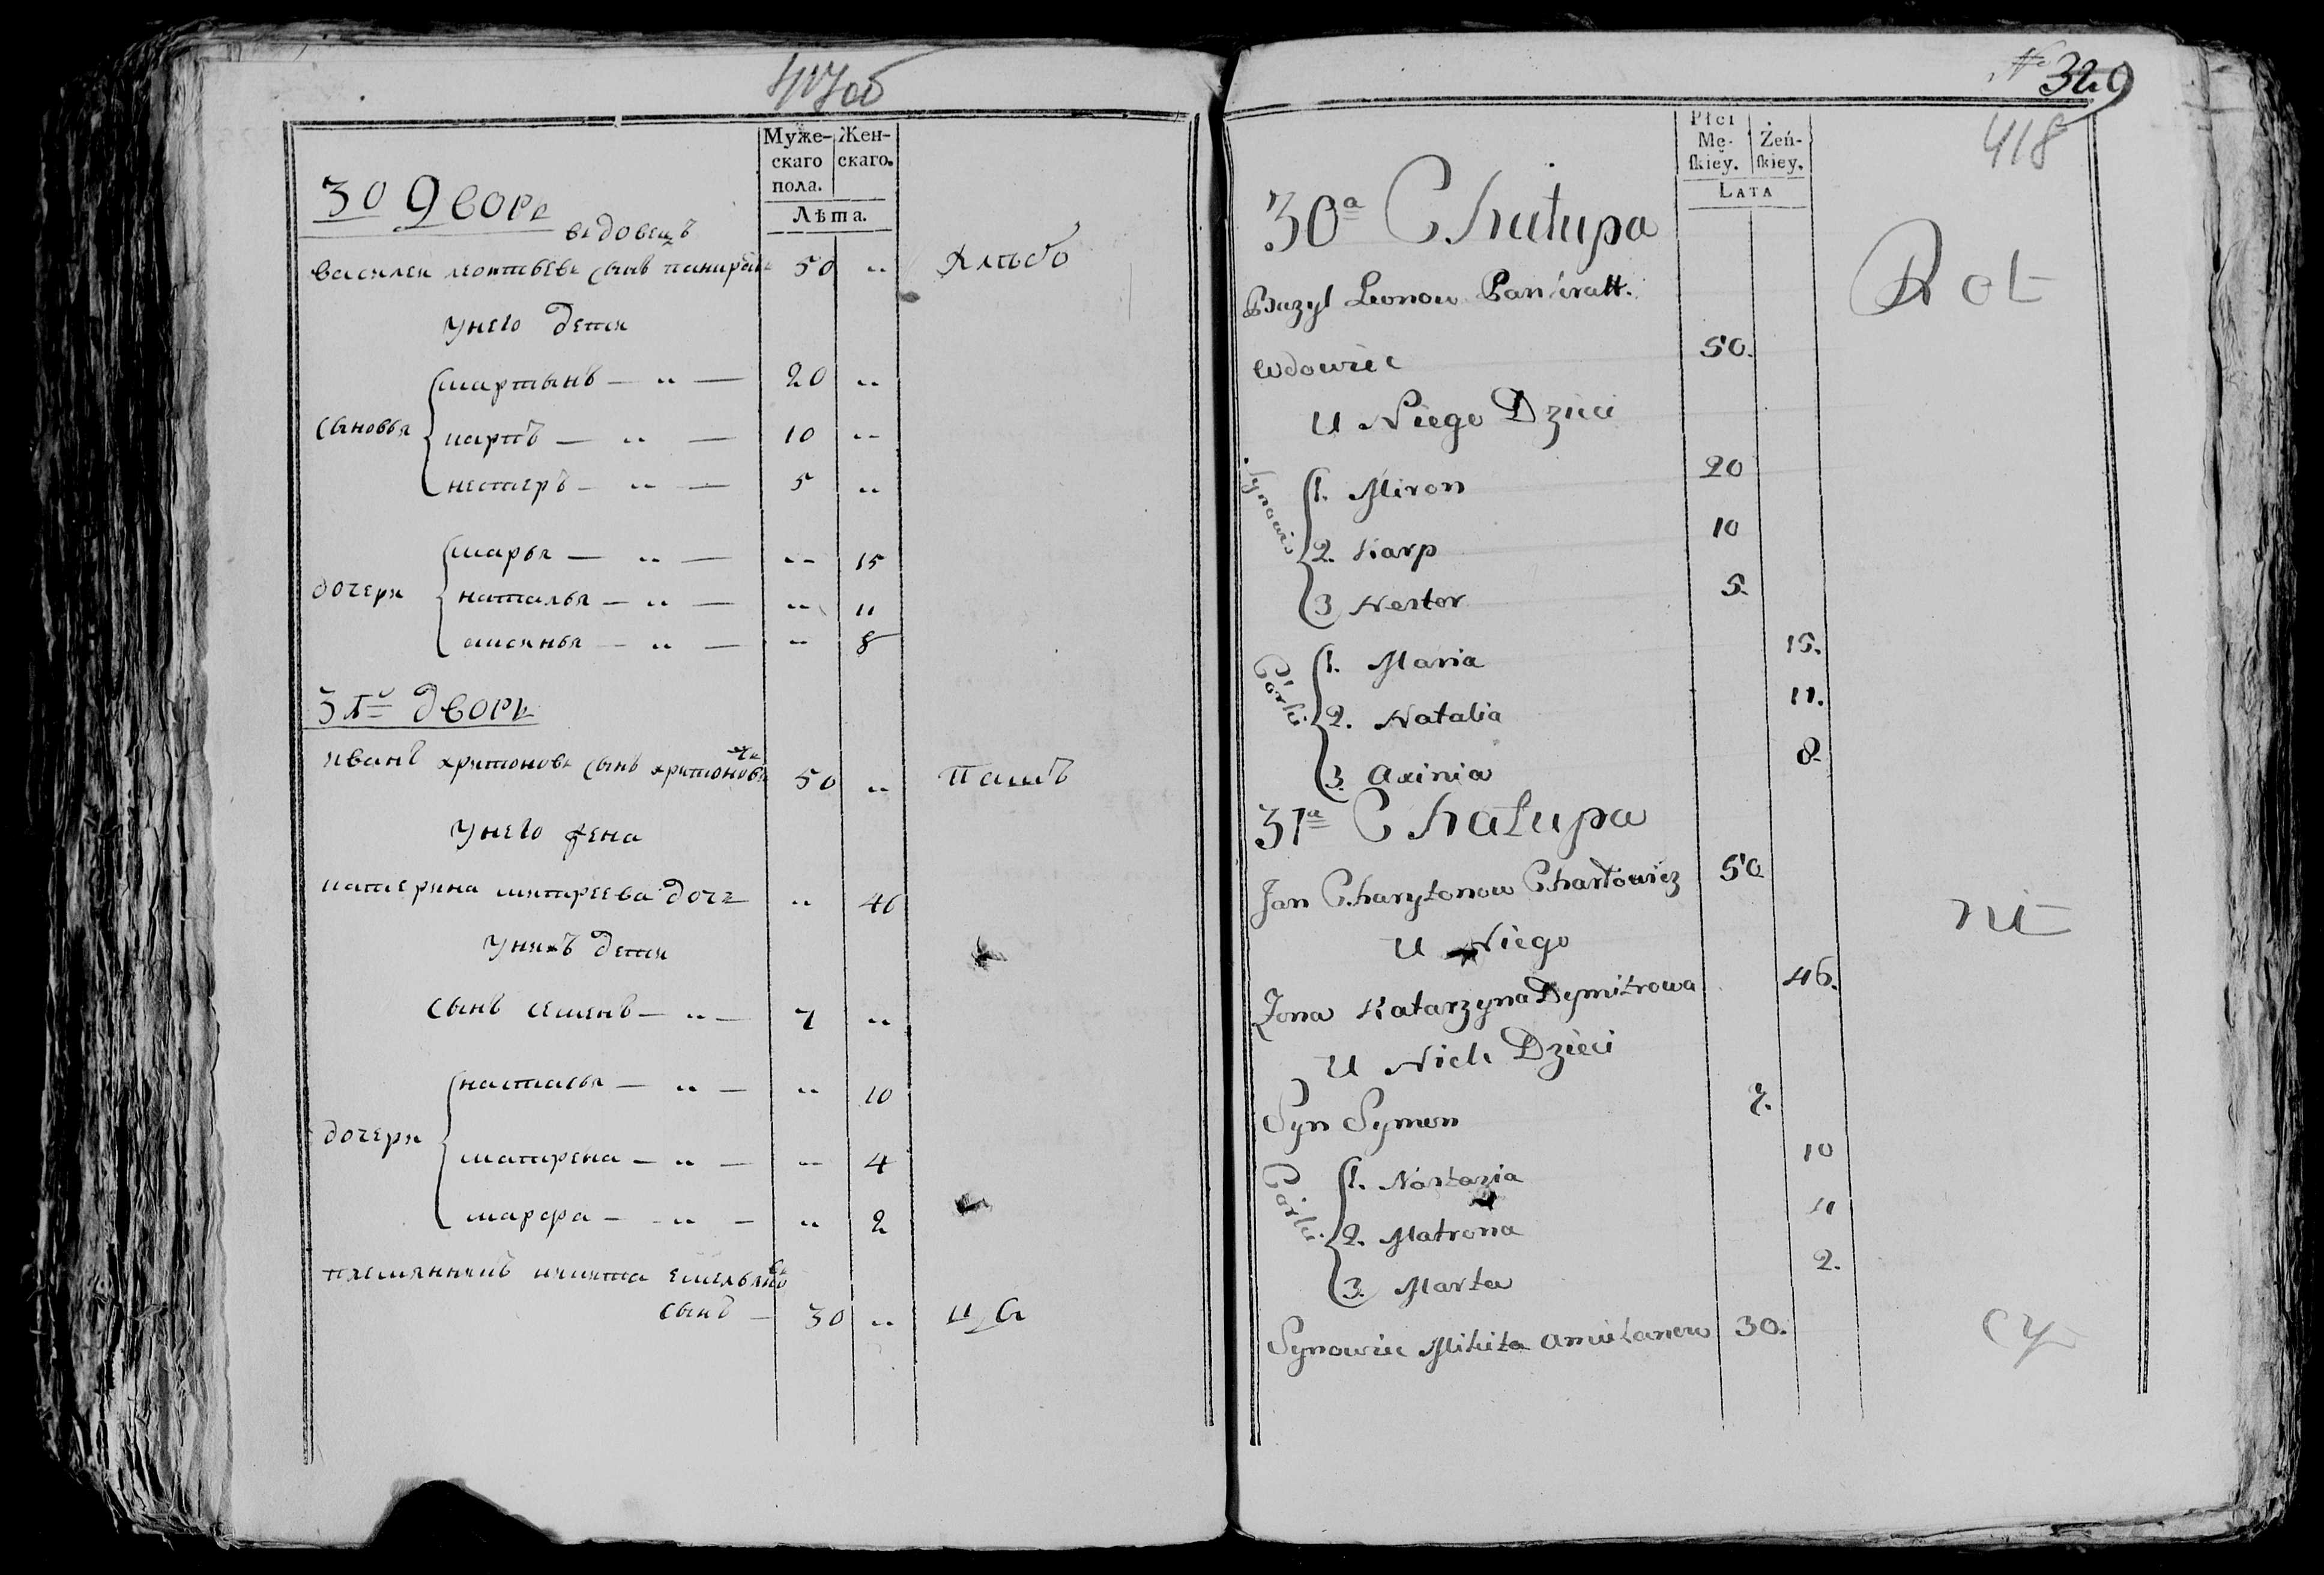 417об
Муже-
скаго
пола.
Жен-
скаго.
Лѣта.
30 дворъ
вдовецъ
василей леонтьевъ сынъ панкратъ 50 ..
унего дети
сыновья
мартынъ — .. — 20 ..
карпъ — .. — 10 ..
нестеръ — .. — 5 ..
дочери
марья — .. — .. 15
наталья — .. — .. 11
аксинья — .. — .. 8
31й дворъ
иванъ хритоновъ сынъ хритоновичъ 50 ..
унего жена
катерина митреева дочь .. 46
унихъ дети
сынъ семенъ — .. — 7 ..
дочери
настасья — .. — .. 10
матрена — .. — .. 4
марфа — .. — .. 2
племянникъ никита емельяновъ
сынъ — 30 ..
№ 329
418
Płci
Mę-
skiey.
Żeń-
skiey.
LATA
30a Chałupa
Bazyl Leonow Pankratt.
wdowiec 50.
U Niego Dzieci
Synowie
1. Miron 20
2. Karp 10
3 Nestor 5.
Córki
1. Maria 15.
2. Natalia 11.
3. Axinia 8.
31a Chałupa
Jan Charytonow Chartowicz 50
U Niego
Żona Katarzyna Dymitrowa 46.
U Nich Dzieci
Syn Symon 7.
Córki
1. Nastazia 10
2. Matrona
3. Marta 2.
Synowiec Mikita 30.